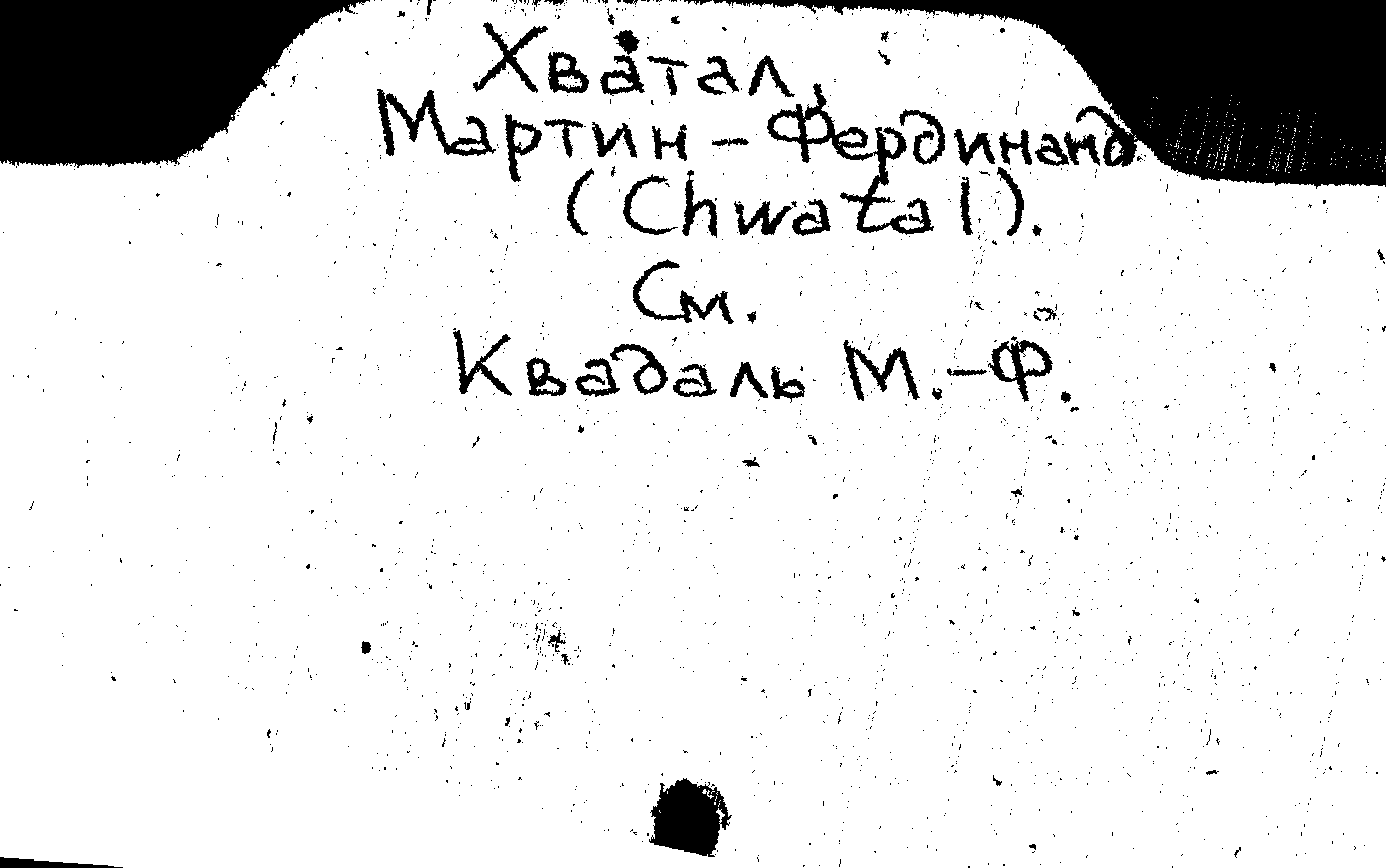 Хватал,
Мартин-Фердинанд
(Chwatal).
См.
Квадаль М.-Ф.